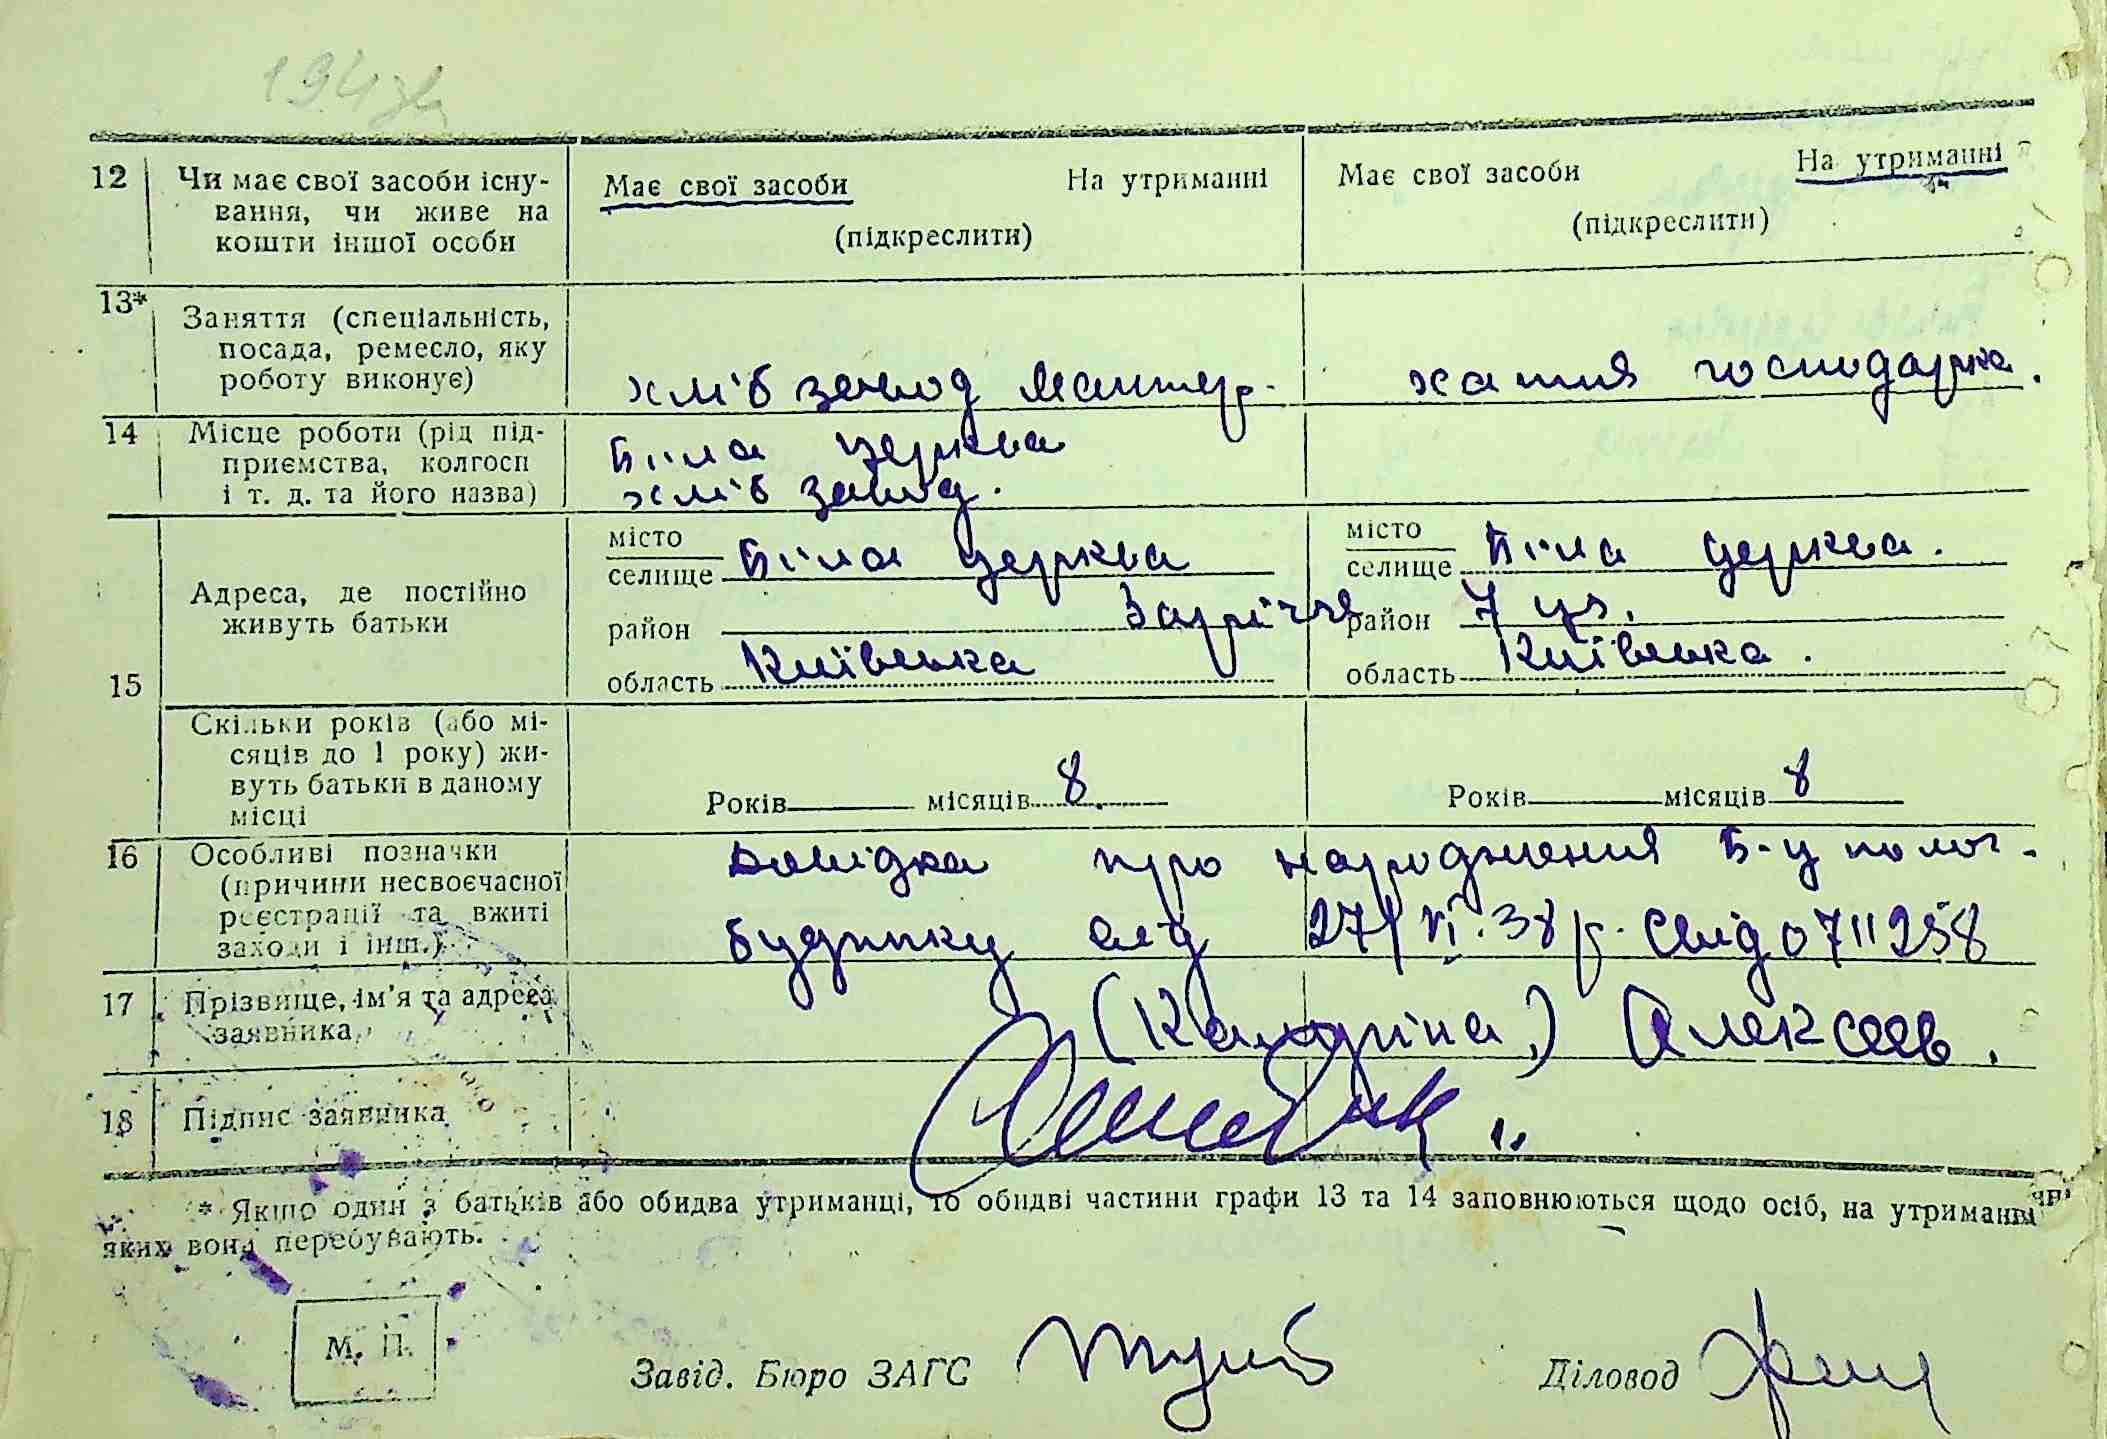 194зв
12 Чи має свої засоби існу- Має свої засоби На утриманні Має свої засоби На утриманні
вання, чи живе на
кошти іншої особи (підкреслити) (підкреслити)
13* Заняття (спеціальність,
посада, ремесло, яку
роботу виконує) хліб завод Мантер. хатня господарка.
14 Місце роботи (рід під- Біла церква
приємства, колгосп
і т. д. та його назва) хліб завод.
15 Адреса, де постійно живуть батьки
місто Біла церква місто Біла церква.
селище селище
район Заріччя район 7
область Київська область Київська.
Скільки років (або мі-
сяців до 1 року) жи-
вуть батьки в даному
місці Років місяців 8. Років місяців 8
16 Особливі позначки довідка про народження Б-ц полог.
(причини несвоєчасної
реєстрації та вжиті будинку від 27/VI.38р. Свід 0711258
заходи і інш.)
17 Прізвище, ім'я та адреса
заявника ) Алексеев.
18 Підпис заявника
* Якщо один з батьків або обидва утриманці, то обидві частини графи 13 та 14 заповнюються щодо осіб, на утриманні
яких вони перебувають.
М. П.
Завід. Бюро ЗАГС Діловод